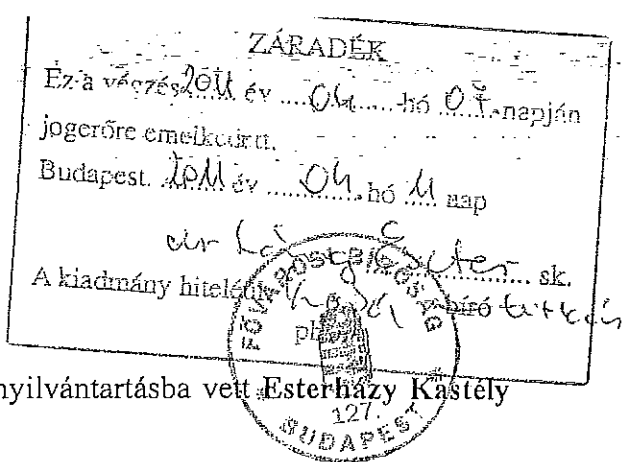 ZÁRADÉK
Ez a végzés 2011 év .... 04 ....... hó 07. napján
jogerőre emelkedett.
Budapest. 2011 év ........... 04. hó 11 nap
dr ............ sk.
A kiadmány hiteléül bíró titkár
ph
FŐVÁROSI BÍRÓSÁG
127.
BUDAPEST
nyilvántartásba vett Esterházy Kastély